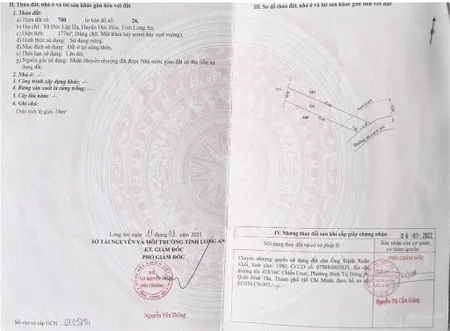 II. Thửa đất, nhà ở và tài sản khác gắn liền với đất
1. Thửa đất:
a) Thửa đất số: 700 tờ bản đồ số: 26,
b) Địa chỉ: Xã Đức Lập Hạ, Huyện Đức Hòa, Tỉnh Long An,
c) Diện tích: 177m², (bằng chữ: Một trăm bảy mươi bảy mét vuông),
d) Hình thức sử dụng: Sử dụng riêng,
đ) Mục đích sử dụng: Đất ở tại nông thôn,
e) Thời hạn sử dụng: Lâu dài,
g) Nguồn gốc sử dụng: Nhận chuyển nhượng đất được Nhà nước giao đất có thu tiền sử
dụng đất.
2. Nhà ở: -/-
3. Công trình xây dựng khác: -/-
4. Rừng sản xuất là rừng trồng: -/-
5. Cây lâu năm: -/-
6. Ghi chú:
Diện tích lộ giới: 38m²
Long An, ngày tháng năm 2021
SỞ TÀI NGUYÊN VÀ MÔI TRƯỜNG TỈNH LONG AN
KT. GIÁM ĐỐC
PHÓ GIÁM ĐỐC
Nguyễn Văn Thông
Số vào sổ cấp GCN:
III. Sơ đồ thửa đất, nhà ở và tài sản khác gắn liền với đất
IV. Những thay đổi sau khi cấp giấy chứng nhận
Nội dung thay đổi và cơ sở pháp lý
Xác nhận của cơ quan
có thẩm quyền
05 -01- 2022
Chuyển nhượng quyền sử dụng đất cho Ông Trịnh Xuân
Khôi, Sinh năm: 1980, CCCD số: địa chỉ
thường trú: Chiến Lược, Phường Bình Trị Đông A,
Quận Bình Tân, Thành phố Hồ Chí Minh, theo hồ sơ số
PHÓ GIÁM ĐỐC
Nguyễn Thị Cẩm Giang